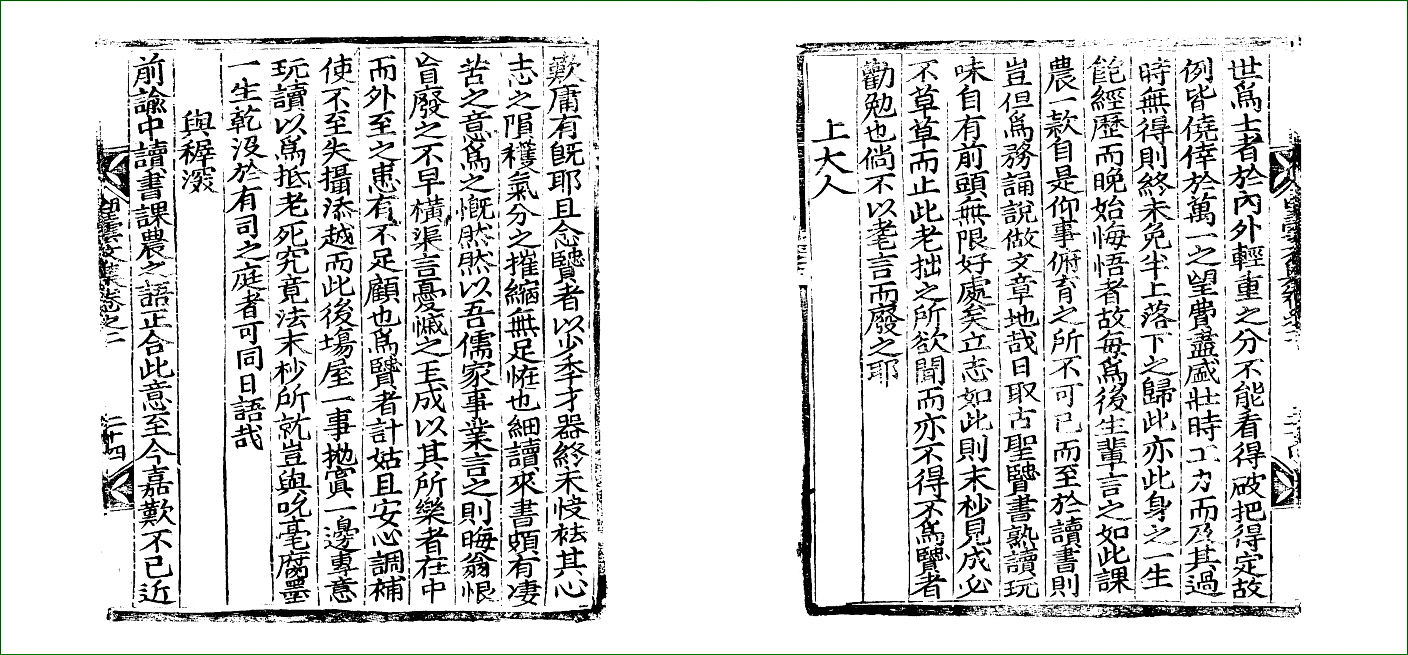 歎庸有旣耶且念賢者以少季才器終未忮袪其心
志之隕穫氣分之摧縮無足恠也細讀來書頗有凄
苦之意爲之慨然然以吾儒家事業言之則晦翁恨
盲廢之不早橫渠言憂慽之玉成以其所樂者在中
而外至之患有不足顧也爲賢者計姑且安心調補
使不至失攝添越而此後塲屋一事拋實一邊專意
玩讀以爲抵老死究竟法末杪所就豈與吮毫腐墨
一生乾沒於有司之庭者可同日語哉
與穉潑
前諭中讀書課農之語正合此意至今嘉歎不已近
卷之二
二十四
世爲士者於內外輕重之分不能看得破把得定故
例皆僥倖於萬一之望費盡盛壯時工力而及其過
時無得則終未免半上落下之歸此亦此身之一生
飽經歷而晩始悔悟者故每爲後生輩言之如此課
農一款自是仰事俯育之所不可已而至於讀書則
豈但爲務誦說做文章地哉日取古聖賢書熟讀玩
味自有前頭無限好處矣立志如此則末杪見成必
不草草而止此老拙之所欲聞而亦不得不爲賢者
勸勉也倘不以耄言而廢之耶
上大人